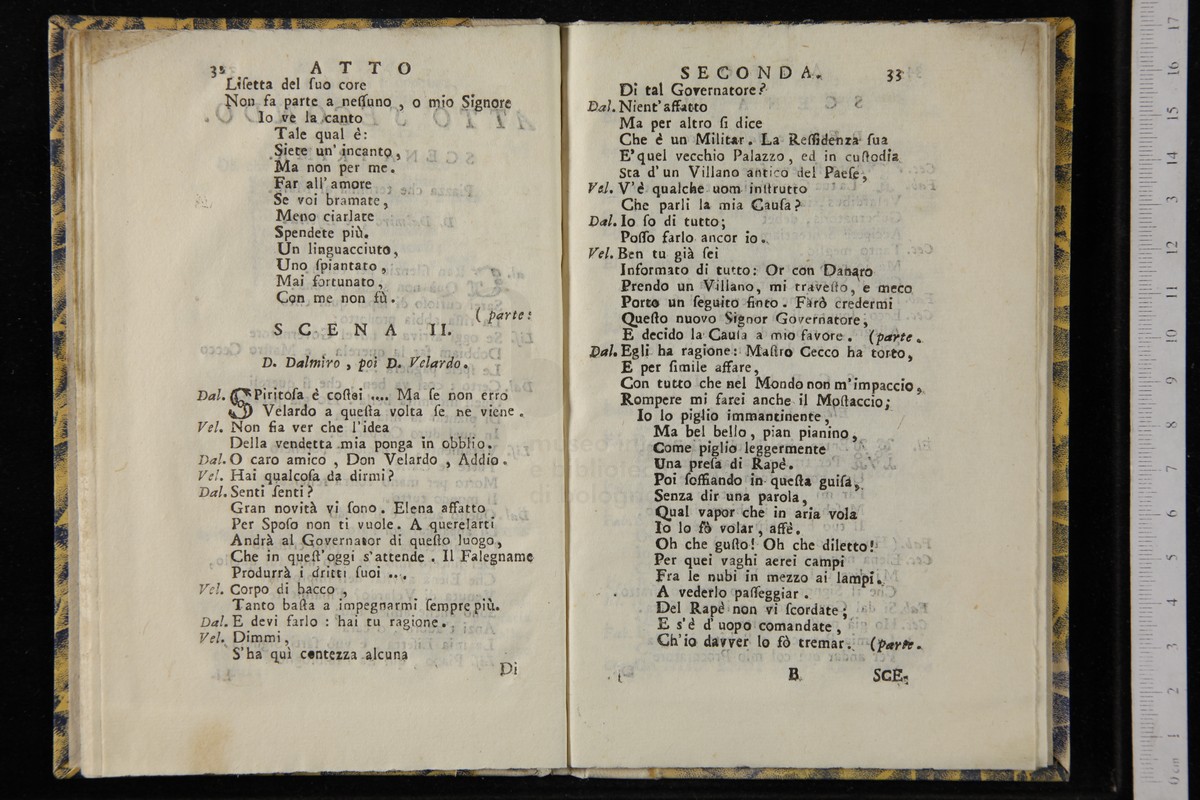 32 ATTO
Liſetta del ſuo core
Non fa parte a neſſuno , o mio Signore
Io ve la canto
Tale qual è:
Siete un' incanto,
Ma non per me.
Far all' amore
Se voi bramate,
Meno ciarlate
Spendete più.
Un linguacciuto,
Uno ſpiantato,
Mai fortunato,
Con me non fù.
( parte:
SCENA II.
D. Dalmiro , poi D. Velardo.
Dal. SPiritoſa è coſtei .... Ma ſe non erro
Velardo a queſta volta ſe ne viene.
Vel. Non fia ver che l'idea
Della vendetta mia ponga in obblio.
Dal. O caro amico , Don Velardo , Addio.
Vel. Hai qualcoſa da dirmi?
Dal. Senti ſenti?
Gran novità vi ſono. Elena affatto
Per Spoſo non ti vuole. A querelarti
Andrà al Governator di queſto luogo,
Che in queſt'oggi s'attende . Il Falegname
Produrrà i dritti ſuoi ....
Vel. Corpo di bacco ,
Tanto baſta a impegnarmi ſempre più.
Dal. E devi farlo : hai tu ragione.
Vel. Dimmi,
S'ha quì contezza alcuna
Di
SECONDA. 33
Di tal Governatore?
Dal. Nient' affatto
Ma per altro ſi dice
Che è un Militar. La Reſſidenza ſua
E'quel vecchio Palazzo , ed in cuſtodia
Sta d'un Villano antico del Paeſe,
Vel. V'è qualche uom inſtrutto
Che parli la mia Cauſa?
Dal. Io ſo di tutto;
Poſſo farlo ancor io.
Vel. Ben tu già ſei
Informato di tutto: Or con Danaro
Prendo un Villano, mi traveſto, e meco
Porto un ſeguito finto. Farò credermi
Queſto nuovo Signor Governatore,
E decido la Cauſa a mio favore. (parte.
Dal. Egli ha ragione: Maſtro Cecco ha torto,
E per ſimile affare,
Con tutto che nel Mondo non m'impaccio,
Rompere mi farei anche il Moſtaccio;
Io lo piglio immantinente,
Ma bel bello, pian pianino,
Come piglio leggermente
Una preſa di Rapè.
Poi ſoffiando in queſta guiſa,
Senza dir una parola,
Qual vapor che in aria vola
Io lo fò volar, affè.
Oh che guſto! Oh che diletto!
Per quei vaghi aerei campi
Fra le nubi in mezzo ai lampi.
A vederlo paſſeggiar .
Del Rapè non vi ſcordate;
E s'è d'uopo comandate,
Ch'io davver lo fò tremar. (parte.
B SCE-